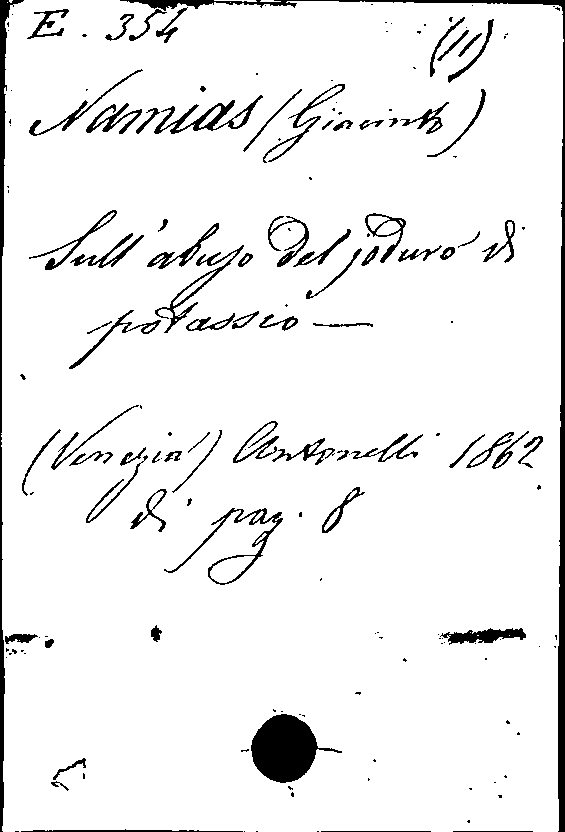 E. 354
(11)
Namias (Giacinto)
Sull'abuso del joduro di
potassio —
(Venezia) Antonelli 1862
di pag. 8